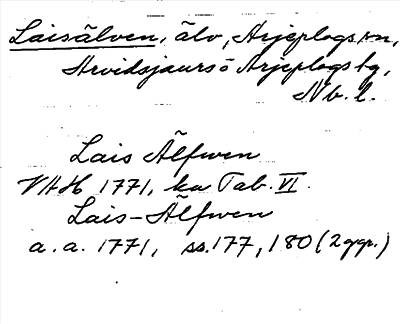 Laisälven, älv, Arjeplogs sn,
Arvidsjaurs o Arjeplogs tg,
Nb. l.
Lais Älfwen
VAH 1771, ka Tab. VI.
Lais-Älfwen
a. a. 1771, ss. 177, 180 (2 ggr.)